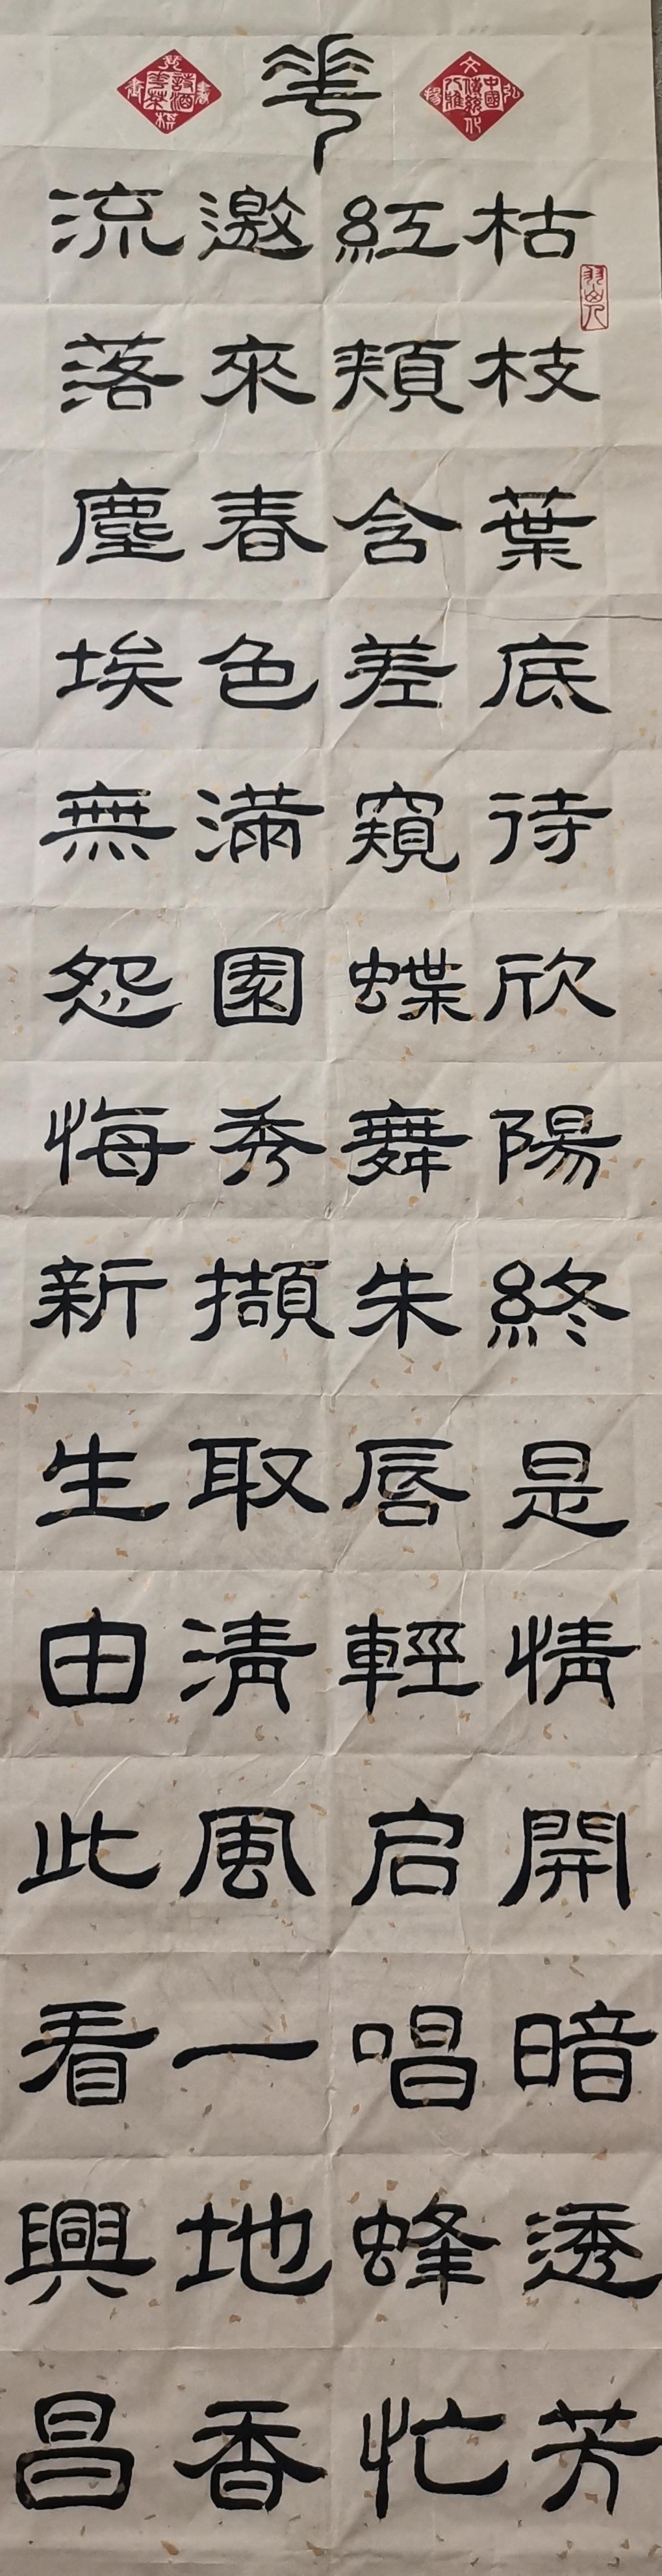 華
枯枝葉底待欣陽終是情開暗透芳
紅頰含羞窺蝶舞朱唇輕启唱蜂忙
邀來春色滿園秀擷取清風一地香
流落塵埃無怨悔新生由此看興昌